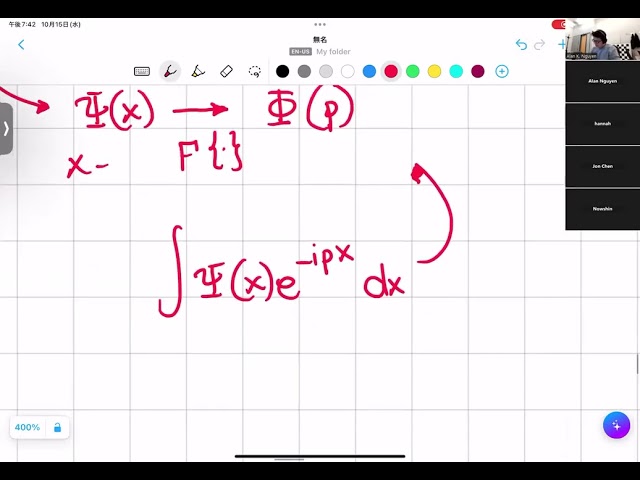 午後7:42 10月15日(水)
無名
EN-US My folder
Alan K. Nguyen
Alan Nguyen
hannah
Jon Chen
Nowshin
Ψ(x) → Φ(p)
x - F{·}
∫Ψ(x)e^{-ipx} dx
400%